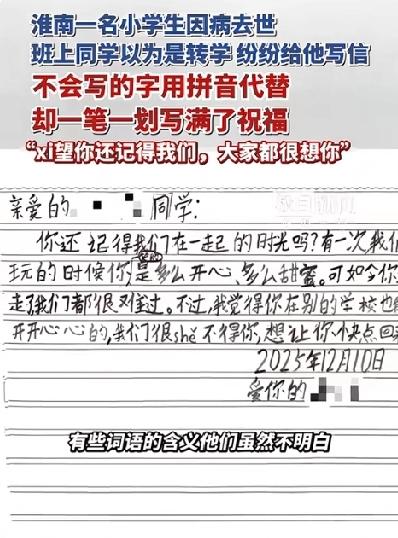 淮南一名小学生因病去世
班上同学以为是转学 纷纷给他写信
不会写的字用拼音代替
却一笔一划写满了祝福
“xi望你还记得我们，大家都很想你”
亲爱的 同学：
你还记得我们在一起的时光吗？有一次我们
玩的时候你是多么开心、多么甜蜜。可如今你
走我们都很难过。不过，我觉得你在别的学校也
开开心心的，我们很shě不得你，想让你快点回
2025年12月10日
爱你的
有些词语的含义他们虽然不明白